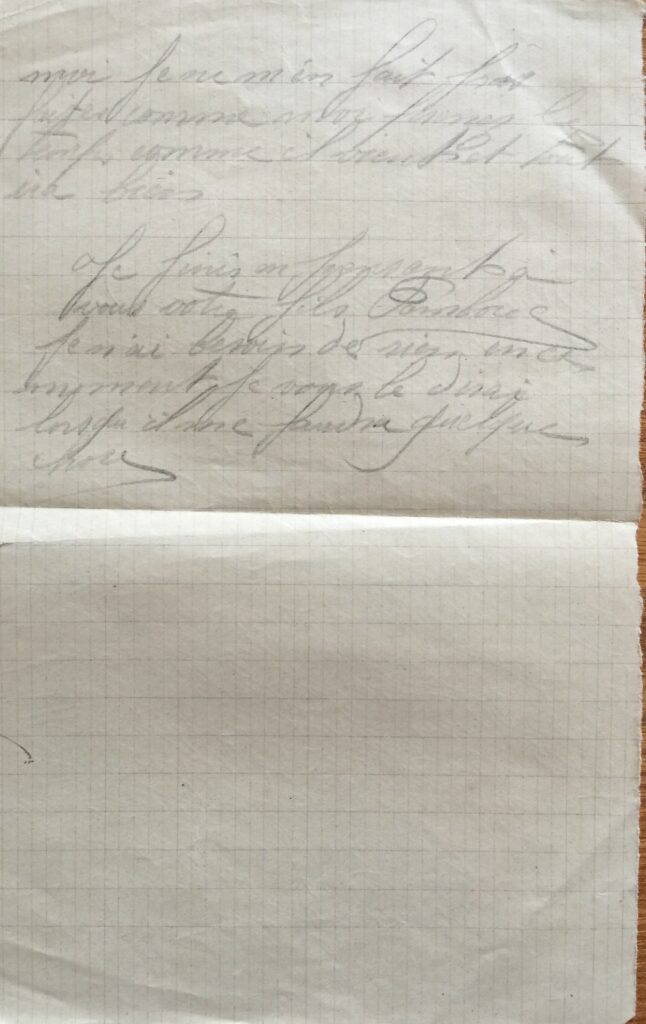 moi je ne m'en fait pas
faites comme moi prener le
temps comme il vient et tout
ira bien
Je finis en pensant à
vous votre fils
Je n'ai besoin de rien en ce
moment je vous le dirai
lorsqu il me faudra quelque
chose